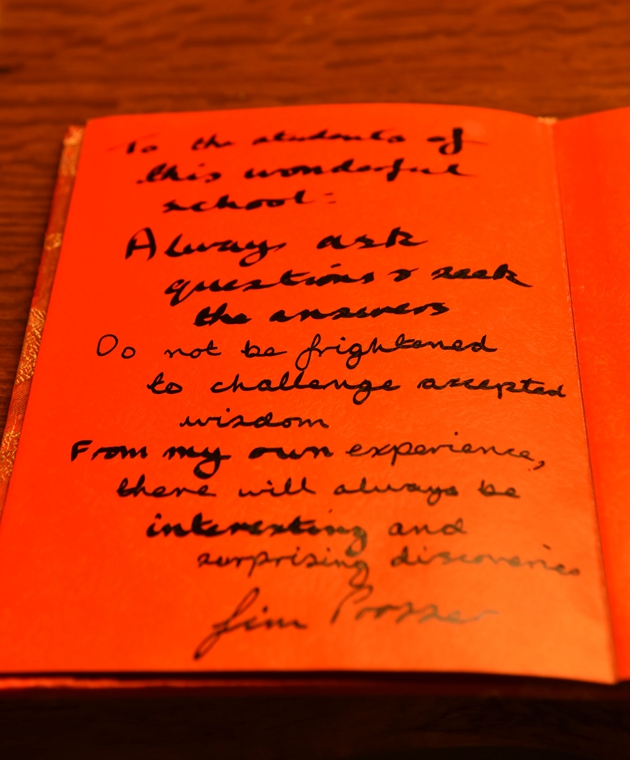 To the students of
this wonderful
school:
Always ask
questions & seek
the answers
Do not be frightened
to challenge accepted
wisdom
From my own experience,
there will always be
interesting and
surprising discoveries
Jim Prosser